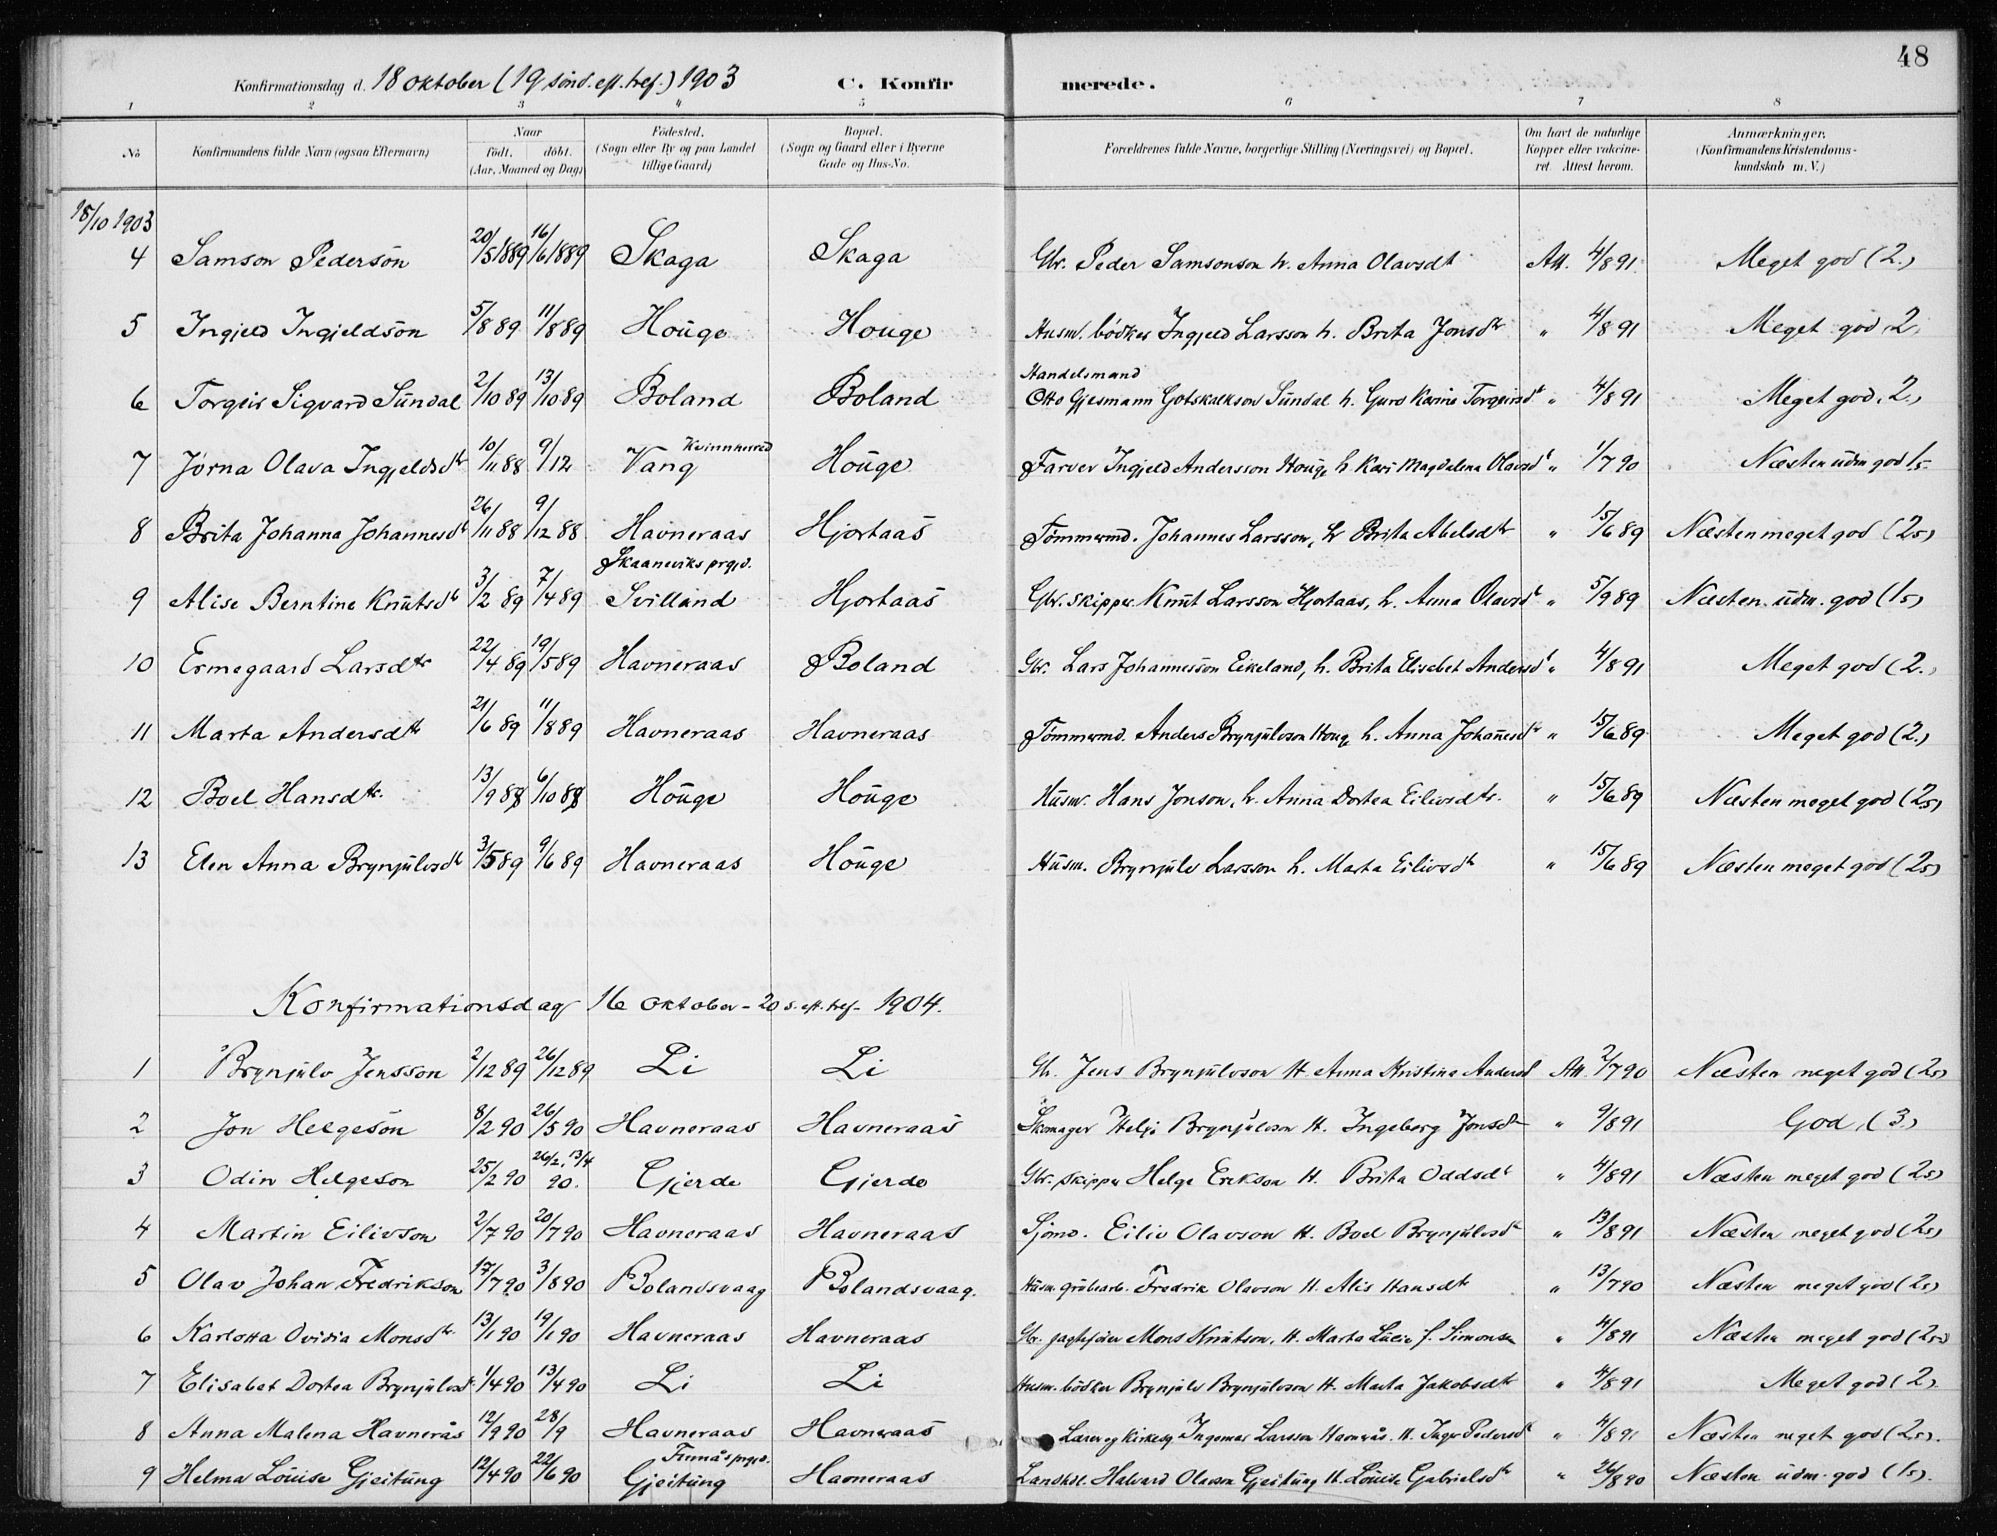 48
Konfirmationsdag d. 18 oktober (19 sönd. eft. tref.) 1903 C. Konfirmerede.
1 2 3 " 5 6 7 8
No Konfirmandens fulde Navn (ogsaa Efternavn) Naar födt. döbt. (Aar, Maaned og Dag) Födested. (Sogn eller By og paa Landet tillige Gaard) Bopæl. (Sogn og Gaard eller i Byerne Gade og Hus-No. Forældrenes fulde Navne, borgerlige Stilling (Næringsvei) og Bopæl. Om havt de naturlige Kopper eller vakcineret. Attest herom. Anmærkninger. (Konfirmandens Kristendomskundskab m. V.)
18/10 1903
4 Samson Pederson 20/5 1889 16/6 1889 Skaga Skaga Gbr. Peder Samsonson h. Anna Olavsdt Att. 4/8 91 Meget god (2.)
5 Ingjeld Ingjeldson 5/8 89 11/8 89 Houge Houge Husm. bödker Ingjeld Larsson h. Brita Jonsdtr " 4/8 91 Meget god 2.
6 Torgeir Sigvard Sundal 2/10 89 13/10 89 Boland Boland Handelsmand Otto Gjesmann Gotskalkson Sundal h. Guro Karine Torgeirsdt " 4/8 91 Meget god. 2.)
7 Jorna Olava Ingjeldsdtr 10/11 88 9/12 Kvinnherred Vang Houge Farver Ingjeld Andersson Houge h. Kari Magdalena Olavsdt " 1/7 90 Næsten udm god 1.5
8 Brita Johanna Johannesdt 26/11 88 9/12 88 Havneraas Hjortaas Tömmermd. Johannes Larsson, h Brita Abelsdtr " 15/6 89 Næsten meget god (2.5)
9 Alise Berntine Knutsdtr 3/2 89 7/4 89 Skaaneviks prgjd. Svilland Hjortaas Gbr. skipper Knut Larsson Hjortaas, h. Anna Olavsdt " 5/9 89 Næsten udm. god (1.5)
10 Ermegaard Larsdtr 22/4 89 19/5 89 Havneraas Boland Gbr. Lars Johannesson Eikeland, h. Brita Elisebet Andersdt " 4/8 91 Meget god (2.)
11 Marta Andersdtr 21/6 89 11/8 89 Havneraas Havneraas Tömmermd. Anders Brynjulvson Houge h. Anna Johanesdtr " 15/6 89 Meget god (2.)
12 Boel Hansdtr. 13/9 88 6/10 88 Houge Houge Husm. Hans Jonson, h. Anna Dortea Eilivsdtr. " 15/6 89 Næsten meget god (2.5)
13 Elen Anna Brynjulvsdtr 3/5 89 9/6 89 Havneraas Houge Husm. Brynjulv Larsson h. Marta Eilivsdtr " 15/6 89 Næsten meget god (2.5)
Konfirmationsdag 16 oktober - 20 s. eft. tref - 1904.
1 Brynjulv Jensson 2/12 89 26/12 89 Li Li Gb. Jens Brynjulvson H. Anna Kristina Andersd Att. 2/7 90 Næsten meget god (2.5)
2 Jon Helgeson 8/2 90 26/5 90 Havneraas Havneraas Skomager Helge Brynjulvson H. Ingeborg Jonsdtr " 9/8 91 God. (3.)
3 Odin Helgeson 25/2 90 26/2, 13/4 90. Gjerde Gjerde Gbr. skipper Helge Erikson H. Brita Oddsdt " 4/8 91 Næsten meget god (2.5)
4 Martin Eilivson 2/7 90 20/7 90 Havneraas Havneraas Sjömd. Eiliv Olavson H. Boel Brynjulvsdtr " 13/8 91 Næsten meget god (2.5)
5 Olav Johan Fredrikson 17/7 90 3/8 90 Bolandsvaag Bolandsvaag. Husm. grubearb. Fredrik Olavson H. Alis Hansdtr " 13/7 90 Næsten meget god (2.5)
6 Karlotta Ovidia Monsdtr 13/1 90 19/1 90 Havneraas Havneraas Gbr. jagtejer Mons Knutson. H. Marta Lucie f. Simonsen " 4/8 91 Næsten meget god (2.5)
7 Elisabet Dortea Brynjulvsdt 1/4 90 13/4 90 Li Li Husm. bödker Brynjulv Brynjulvson H. Marta Jakobsdtr " 4/8 91 Meget god (2).
8 Anna Malena Havnerås 12/9 90 28/9 Havneraas Havneraas Lærer og kirkesg Ingemar Larsson Havnerås. H. Inger Pedersdt " 4/8 91 Næsten meget god (2.5).
9 Helma Louise Gjeitung 12/4 90 22/6 90 Finnås prgjd. Gjeitung Havneraas Landhdl. Halvard Olavson Gjeitung H. Louise Gabrielsdtr " 26/8 90 Næsten udm. god (1.5).